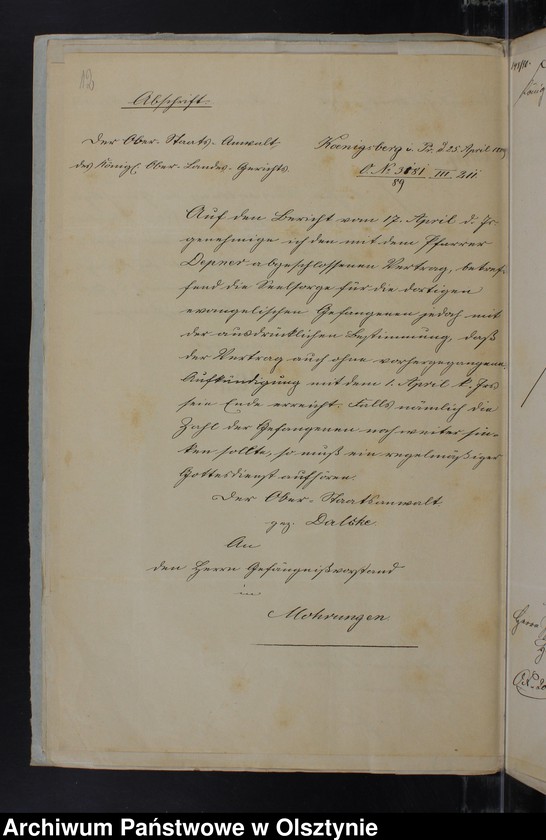 12
Abschrift.
Der Ober-Staats-Anwalt
des Königl. Ober-Landes-Gerichts.
Koenigsberg i. Pr. d. 25. April 1889
O. No 5181 III 211
89
Auf den Bericht vom 17. April d. Js.
genehmige ich den mit dem Pfarrer
Depner abgeschlossenen Vertrag, betref-
fend die Seelsorge für die dortigen
evangelischen Gefangenen jedoch mit
der ausdrücklichen Bestimmung, daß
der Vertrag auch ohne vorhergegangene
Aufkündigung mit dem 1. April k. Jrs
sein Ende erreicht. Falls nämlich die
Zahl der Gefangenen noch weiter sin-
ken sollte, so muß ein regelmäßiger
Gottesdienst aufhören.
Der Ober-Staatsanwalt
gez. Dalcke.
An
den Herrn Gefängnißvorstand
in
Mohrungen.
Herrn
Archiwum Państwowe w Olsztynie